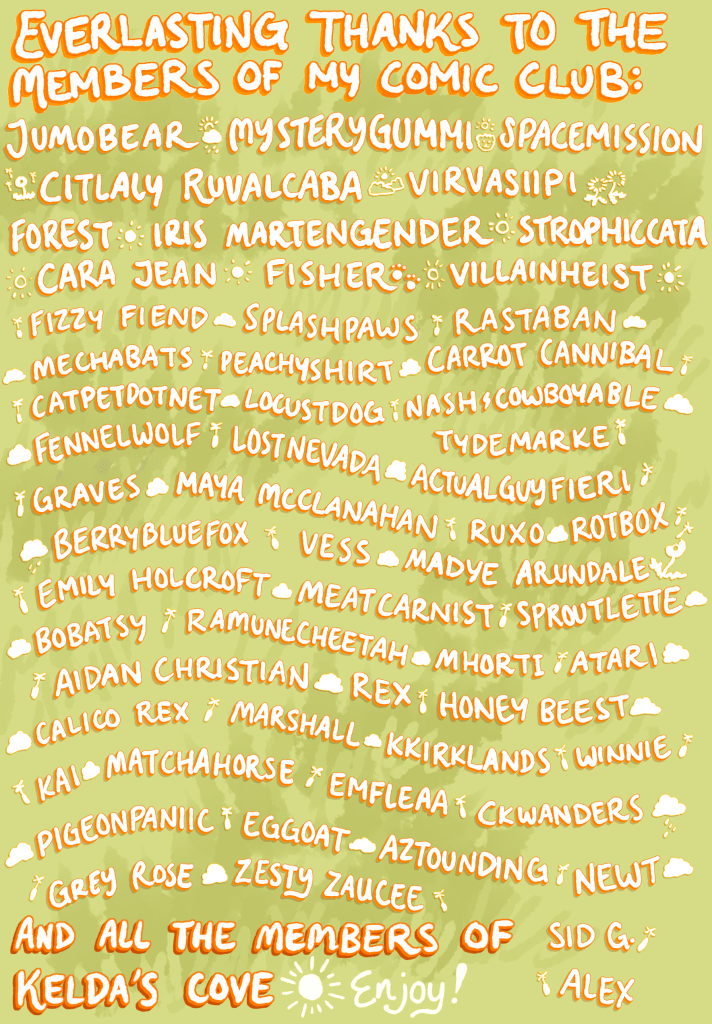 EVERLASTING THANKS TO THE
MEMBERS OF MY COMIC CLUB:
JUMOBEAR MYSTERYGUMMI SPACEMISSION
CITLALY RUVALCABA VIRVASIIPI
FOREST IRIS MARTENGENDER STROPHICCATA
CARA JEAN FISHER VILLAINHEIST
FIZZY FIEND SPLASHPAWS RASTABAN
MECHABATS PEACHYSHIRT CARROT CANNIBAL
CATPETDOTNET LOCUSTDOG NASH & COWBOYABLE
FENNELWOLF LOSTNEVADA TYDEMARKE
GRAVES MAYA MCCLANAHAN ACTUALGUYFIERI
BERRYBLUEFOX VESS RUXO ROTBOX
EMILY HOLCROFT MADYE ARUNDALE
MEATCARNIST SPROUTLETTE
BOBATSY RAMUNECHEETAH MHORTI ATARI
AIDAN CHRISTIAN REX HONEY BEEST
CALICO REX MARSHALL KKIRKLANDS WINNIE
KAI MATCHAHORSE EMFLEAA CKWANDERS
PIGEONPANIIC EGGOAT AZTOUNDING NEWT
GREY ROSE ZESTY ZAUCEE
AND ALL THE MEMBERS OF SID G.
KELDA'S COVE Enjoy! ALEX